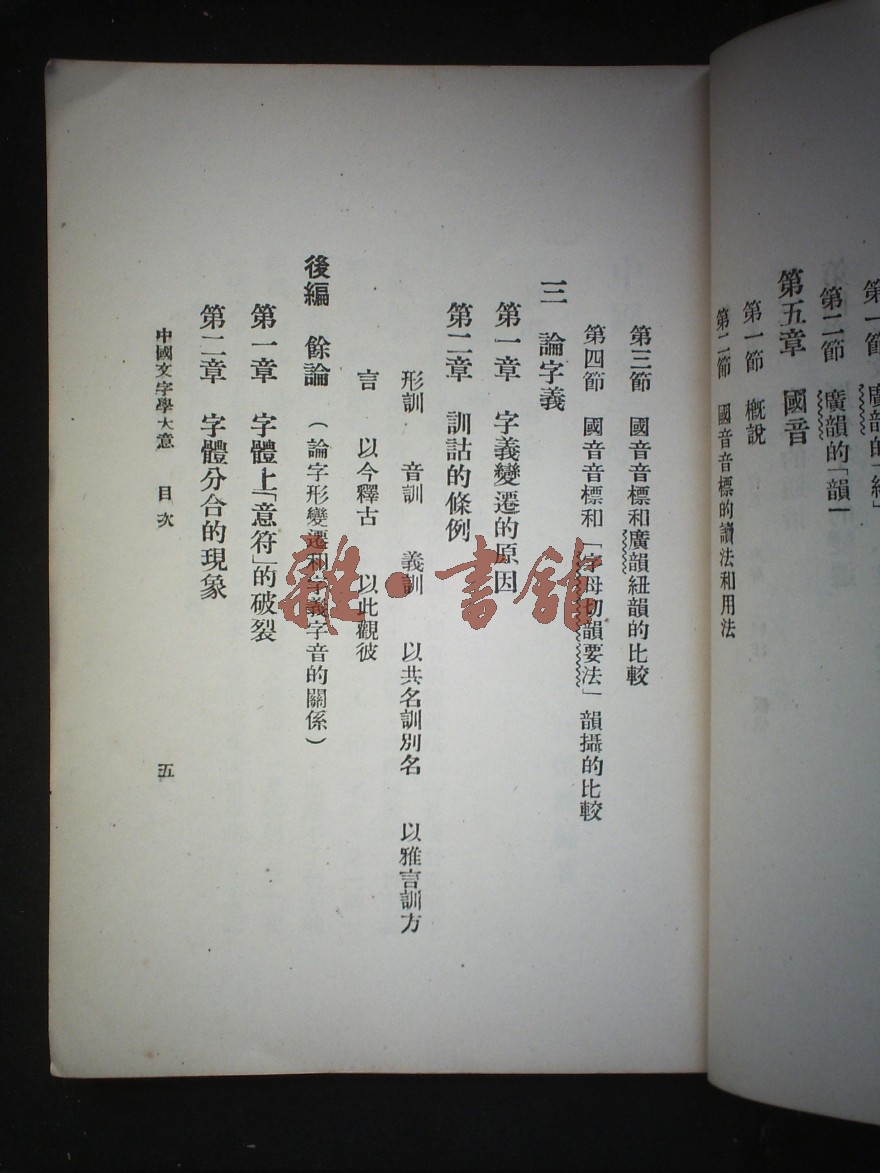 第一節 廣韻的「紐」
第二節 廣韻的「韻」
第五章 國音
第一節 概說
第二節 國音音標的讀法和用法
第三節 國音音標和廣韻紐韻的比較
第四節 國音音標和「字母切韻要法」韻攝的比較
三 論字義
第一章 字義變遷的原因
第二章 訓詁的條例
形訓 音訓 義訓 以共名訓別名 以雅言訓方
言 以今釋古 以此觀彼
後編 餘論(論字形變遷和字義字音的關係)
第一章 字體上「意符」的破裂
第二章 字體分合的現象
中國文字學大意 目次 五
雜·書館